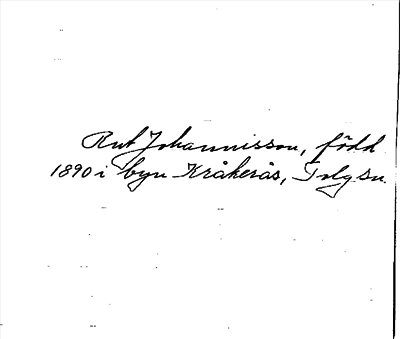 Rut Johannisson, född
1890 i byn Kråkerås, Tolg sn.